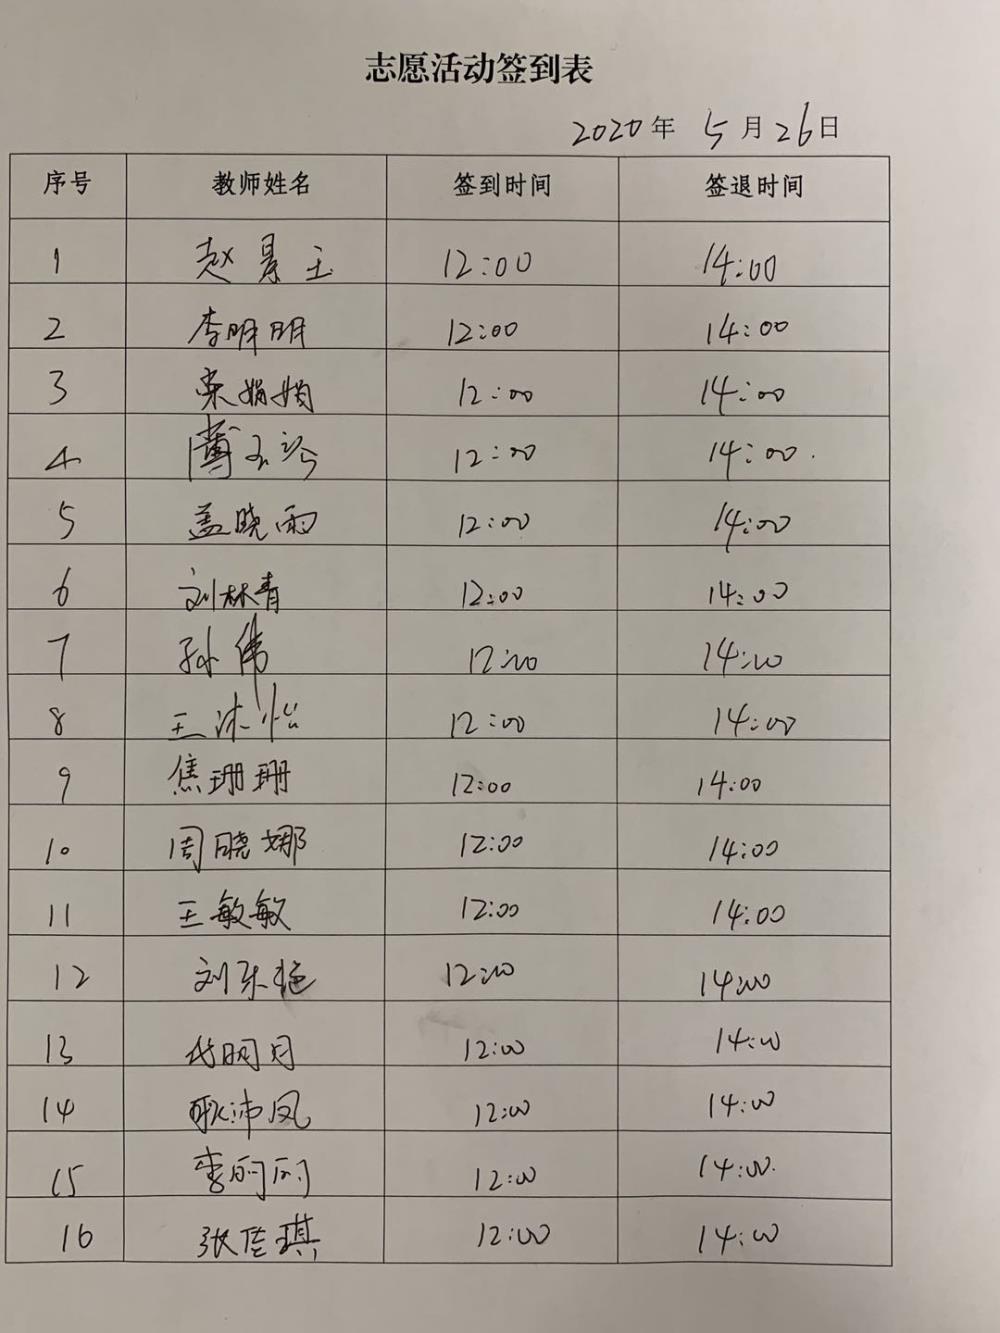 志愿活动签到表
2020年 5月26日
序号 教师姓名 签到时间 签退时间
1 赵景玉 12:00 14:00
2 李明明 12:00 14:00
3 宋娟娟 12:00 14:00
4 12:00 14:00.
5 盖晓雨 12:00 14:00
6 刘林青 12:00 14:00
7 孙伟 12:00 14:00
8 王沐怡 12:00 14:00
9 焦珊珊 12:00 14:00
10 周晓娜 12:00 14:00
11 王敏敏 12:00 14:00
12 刘东艳 12:00 14:00
13 代明月 12:00 14:00
14 耿沛凤 12:00 14:00
15 李 12:00 14:00.
16 张佳琪 12:00 14:00